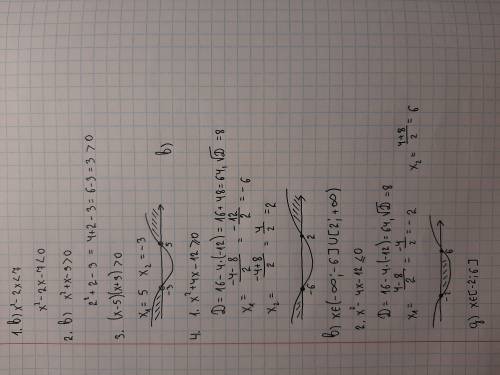 1. В) x²-2x<7
x²-2x-7<0
2. В) x²+x-3>0
2²+2-3 = 4+2-3=6-3=3>0
3. (x-5)(x+3)>0
x₁=5 x₂=-3
-3 5
В)
4. 1. x²+4x-12≥0
D=16-4·(-12)=16+48=64, √D=8
x₁= (-4-8)/2 = -12/2 = -6
x₂= (-4+8)/2 = 4/2 = 2
-6 2
В) x∈(-∞;-6]∪[2;+∞)
2. x²-4x-12≤0
D=16-4·(-12)=64, √D=8
x₁= (4-8)/2 = -4/2 = -2
x₂= (4+8)/2 = 6
6
x∈[-2;6]